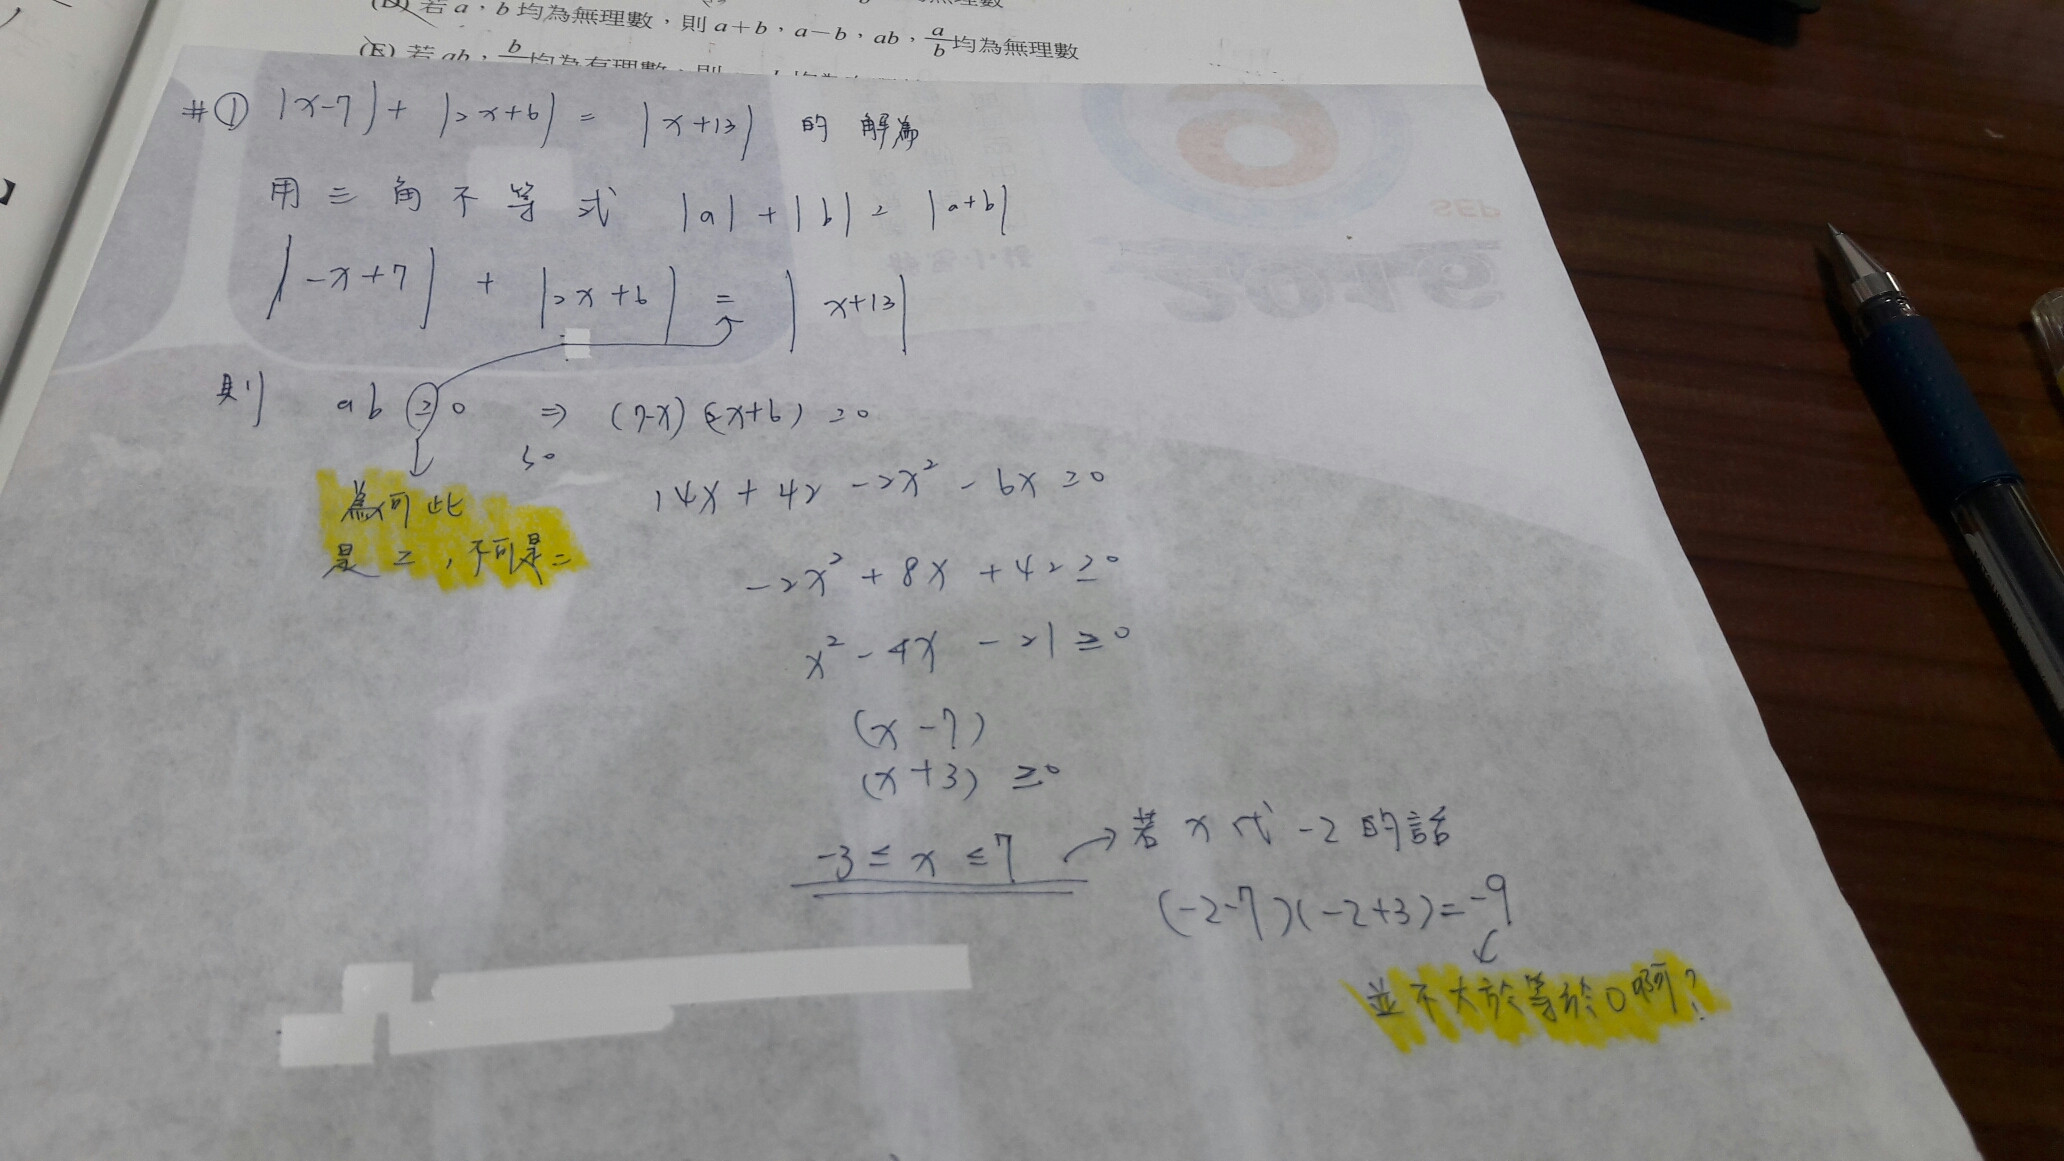 (D) 若 a，b 均為無理數，則 a+b，a−b，ab，a/b 均為無理數
(E) 若 ab，b 均為有理數，則
#① |x-7| + |2x+6| = |x+13| 的 解為
用 三 角 不 等 式 |a| + |b| = |a+b|
|-x+7| + |2x+6| = |x+13|
則 ab ≥ 0 ⇒ (7-x)(2x+6) ≥ 0
14x + 42 - 2x² - 6x ≥ 0
為何此
是 ≥，不可是=
-2x² + 8x + 42 ≥ 0
x² - 4x - 21 ≥ 0
(x-7)
(x+3) ≥0
-3 ≤ x ≤ 7 → 若 x 代 -2 的話
(-2-7)(-2+3)=-9
並不大於等於0啊?
SEP
2016